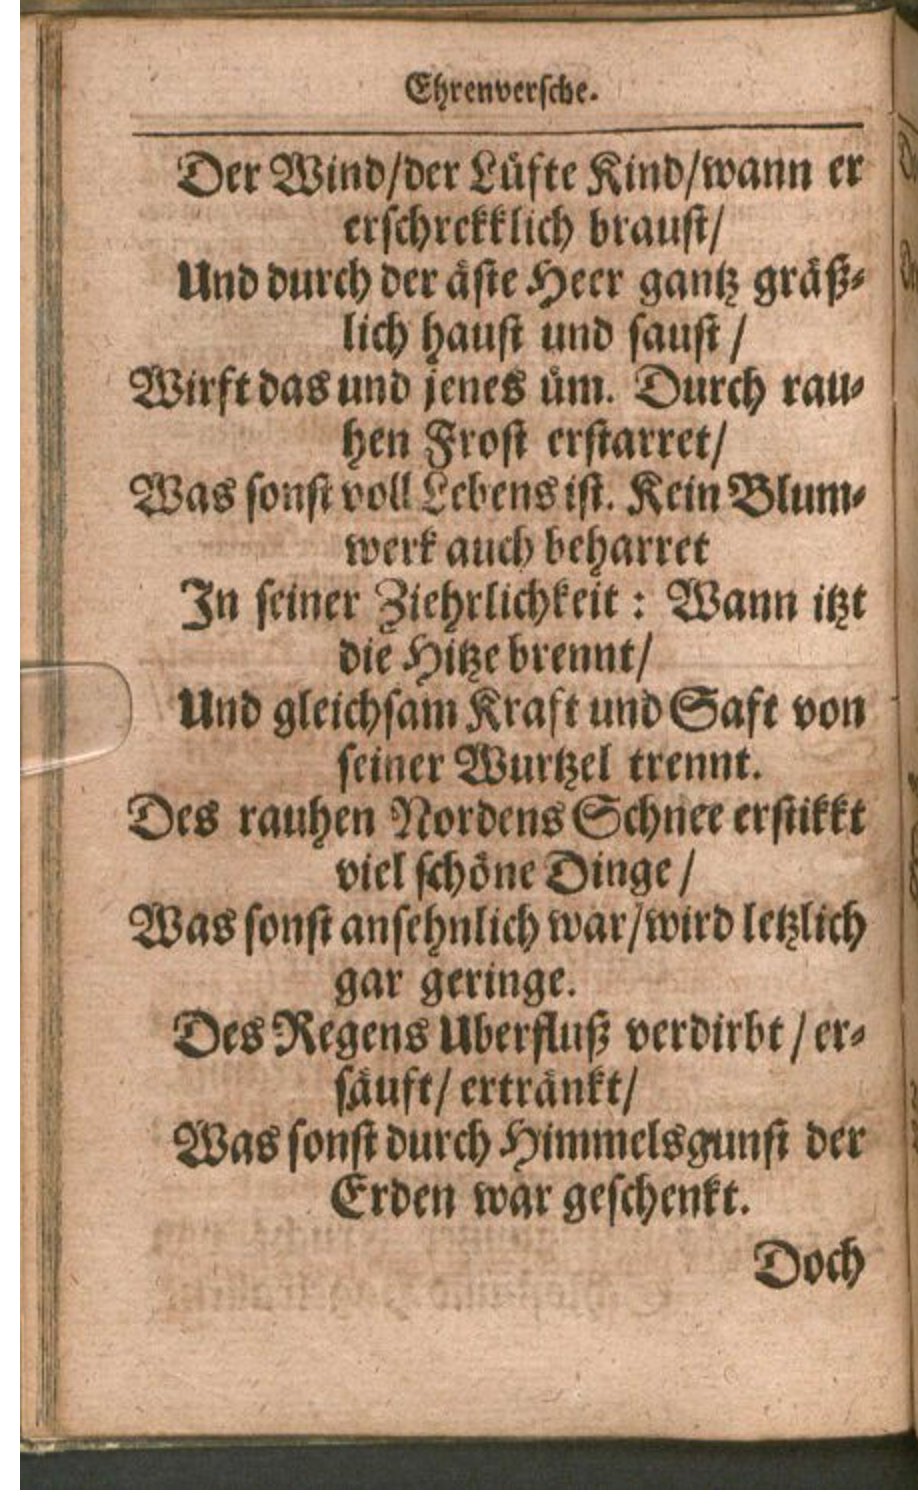 Ehrenversche.
Der Wind/der Lüfte Kind/wann er
erschrekklich braust/
Und durch der äste Heer gantz gräß-
lich haust und saust /
Wirft das und jenes üm. Durch rau-
hen Frost erstarret/
Was sonst voll Lebens ist. Kein Blum-
werk auch beharret
In seiner Ziehrlichkeit : Wann itzt
die Hitze brennt/
Und gleichsam Kraft und Saft von
seiner Wurtzel trennt.
Des rauhen Nordens Schnee erstikkt
viel schöne Dinge /
Was sonst ansehnlich war/wird letzlich
gar geringe.
Des Regens Uberfluß verdirbt / er-
säuft/ ertränkt/
Was sonst durch Himmelsgunst der
Erden war geschenkt.
Doch